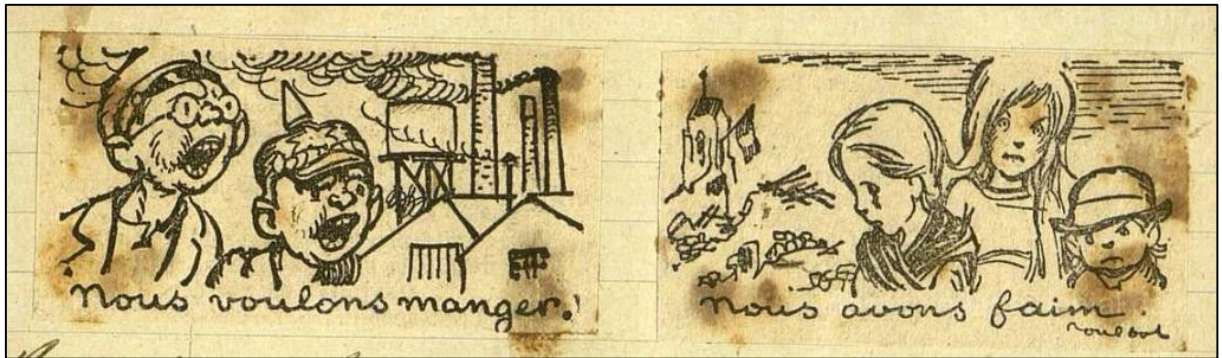 Nous voulons manger!
Nous avons faim.
Poulbot